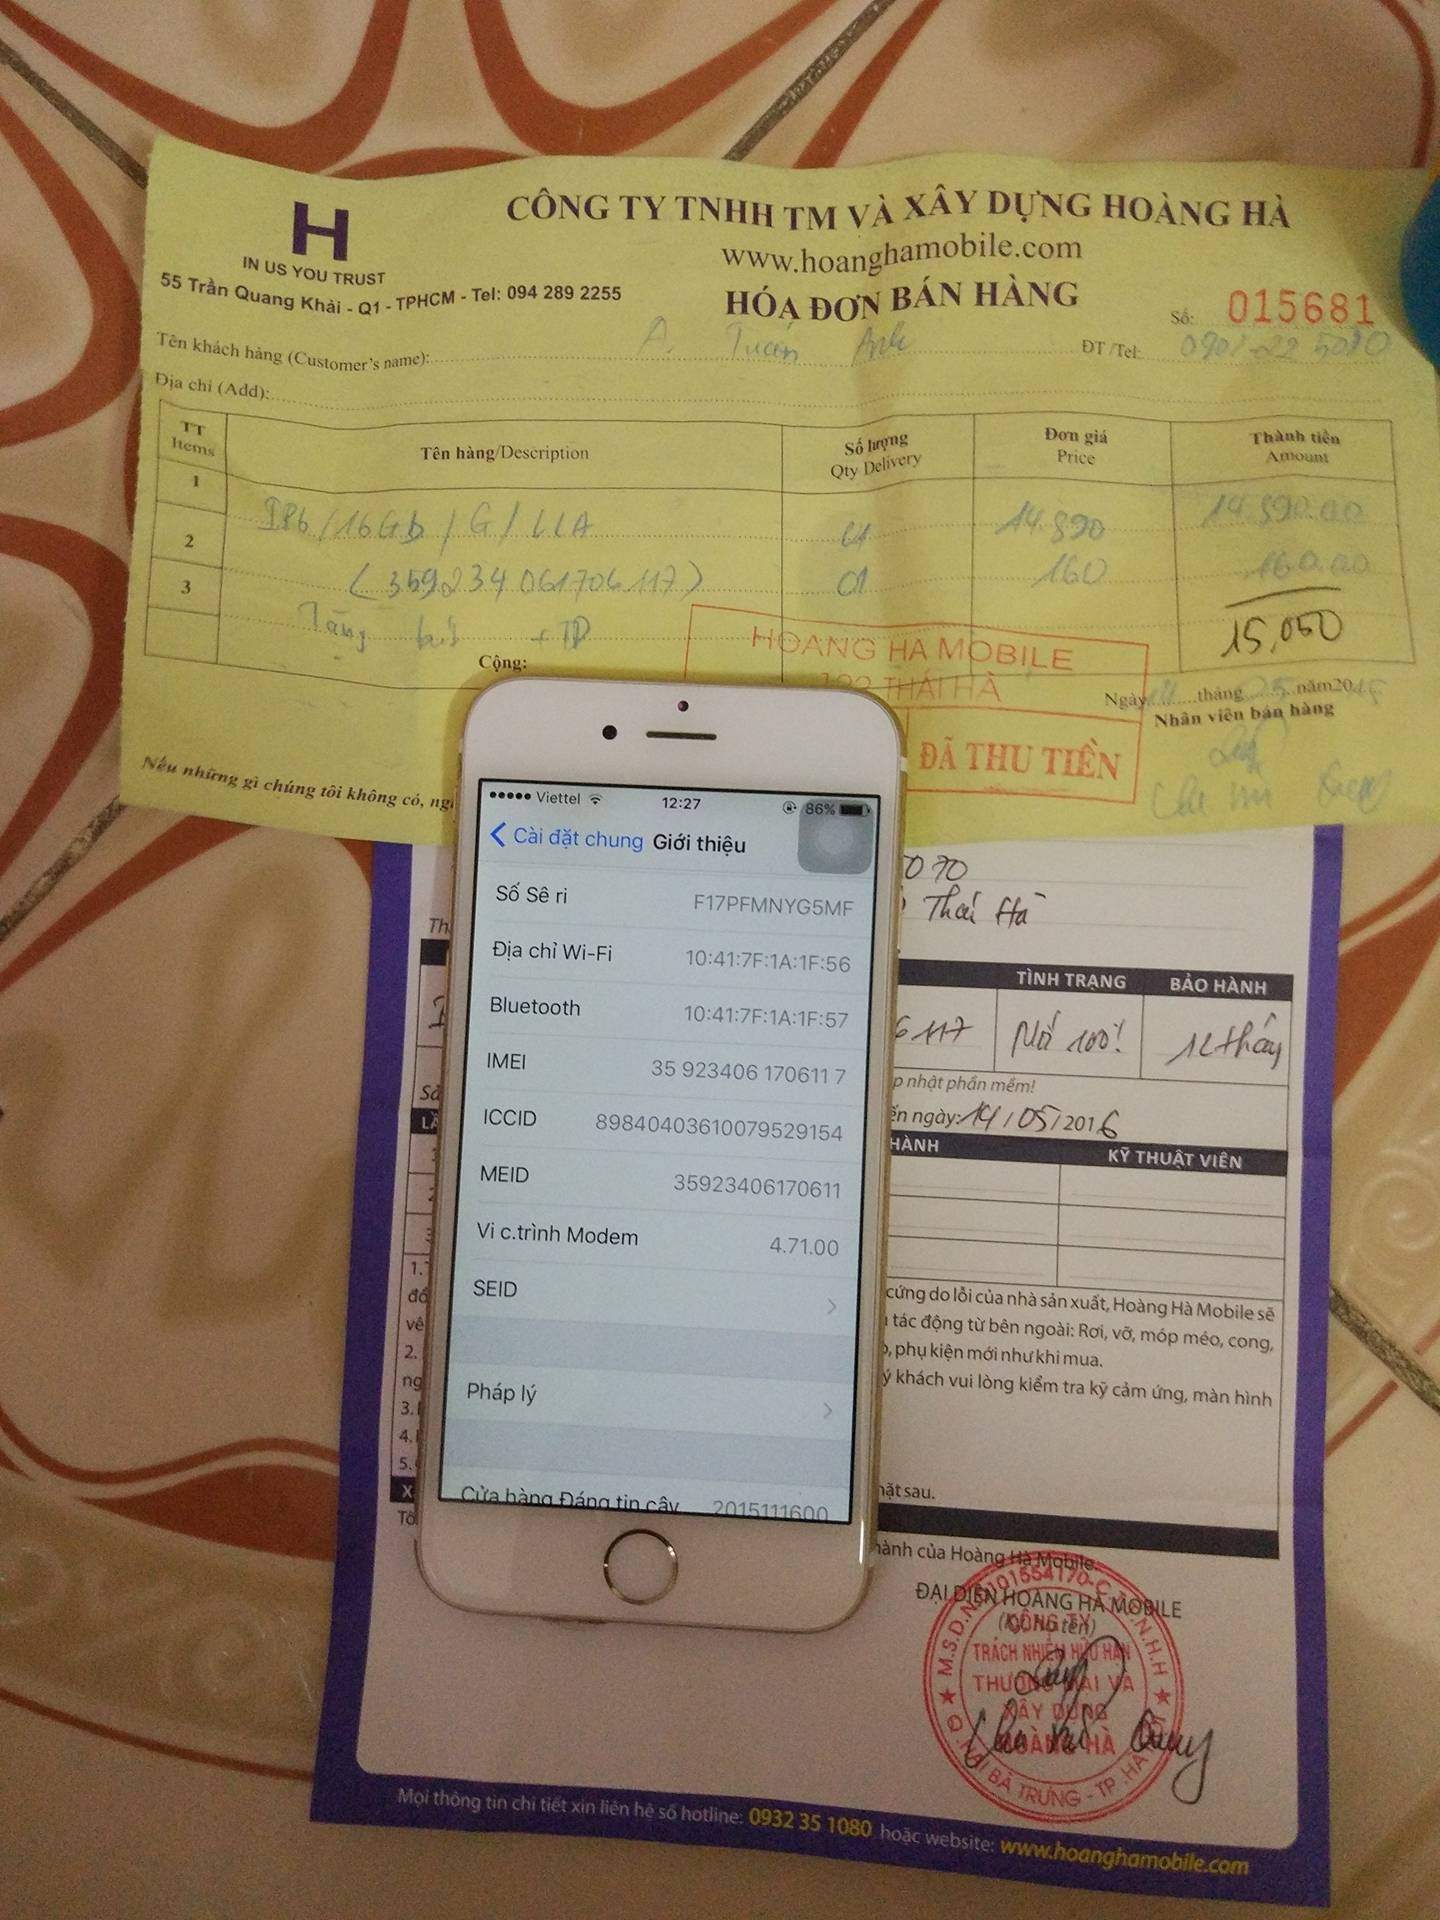 H
IN US YOU TRUST
55 Trần Quang Khải - Q1 - TPHCM - Tel: 094 289 2255
CÔNG TY TNHH TM VÀ XÂY DỰNG HOÀNG HÀ
www.hoanghamobile.com
HÓA ĐƠN BÁN HÀNG
Số: 015681
Tên khách hàng (Customer's name): A. Tuấn Anh ĐT/Tel:
Địa chỉ (Add):
TT Items Tên hàng/Description Số lượng Qty Delivery Đơn giá Price Thành tiền Amount
1 IP6/16Gb/G/LLA 01 14.890 14.890.00
2 (359234061706117) 01 160 160.00
3 Tặng + TD 15,050
Cộng:
HOANG HA MOBILE
122 THÁI HÀ
ĐÃ THU TIỀN
Ngày 14 tháng 05 năm2015
Nhân viên bán hàng
Nếu những gì chúng tôi không có,
Viettel 12:27 86%
Cài đặt chung Giới thiệu
Số Sê ri F17PFMNYG5MF
Địa chỉ Wi-Fi 10:41:7F:1A:1F:56
Bluetooth 10:41:7F:1A:1F:57
IMEI 35 923406 170611 7
ICCID 89840403610079529154
MEID 35923406170611
Vi c.trình Modem 4.71.00
SEID
Pháp lý
Cửa hàng Đáng tin cậy 2015111600
5070
Thái Hà
TÌNH TRẠNG BẢO HÀNH
6117 Mới 100% 12 tháng
p nhật phần mềm!
ến ngày: 14/05/2016
HÀNH KỸ THUẬT VIÊN
1.
2.
3.
4.
5.
cứng do lỗi của nhà sản xuất, Hoàng Hà Mobile sẽ
tác động từ bên ngoài: Rơi, vỡ, móp méo, cong,
, phụ kiện mới như khi mua.
ý khách vui lòng kiểm tra kỹ cảm ứng, màn hình
mặt sau.
hành của Hoàng Hà Mobile.
ĐẠI DIỆN HOÀNG HÀ MOBILE
(Ký, họ tên)
M.S.D.N: 0101554170-C.T.T.N.H.H
CÔNG TY
TRÁCH NHIỆM HỮU HẠN
THƯƠNG MẠI VÀ
XÂY DỰNG
HOÀNG HÀ
Q. HAI BÀ TRƯNG - TP. HÀ NỘI
Mọi thông tin chi tiết xin liên hệ số hotline: 0932 35 1080 hoặc website: www.hoanghamobile.com